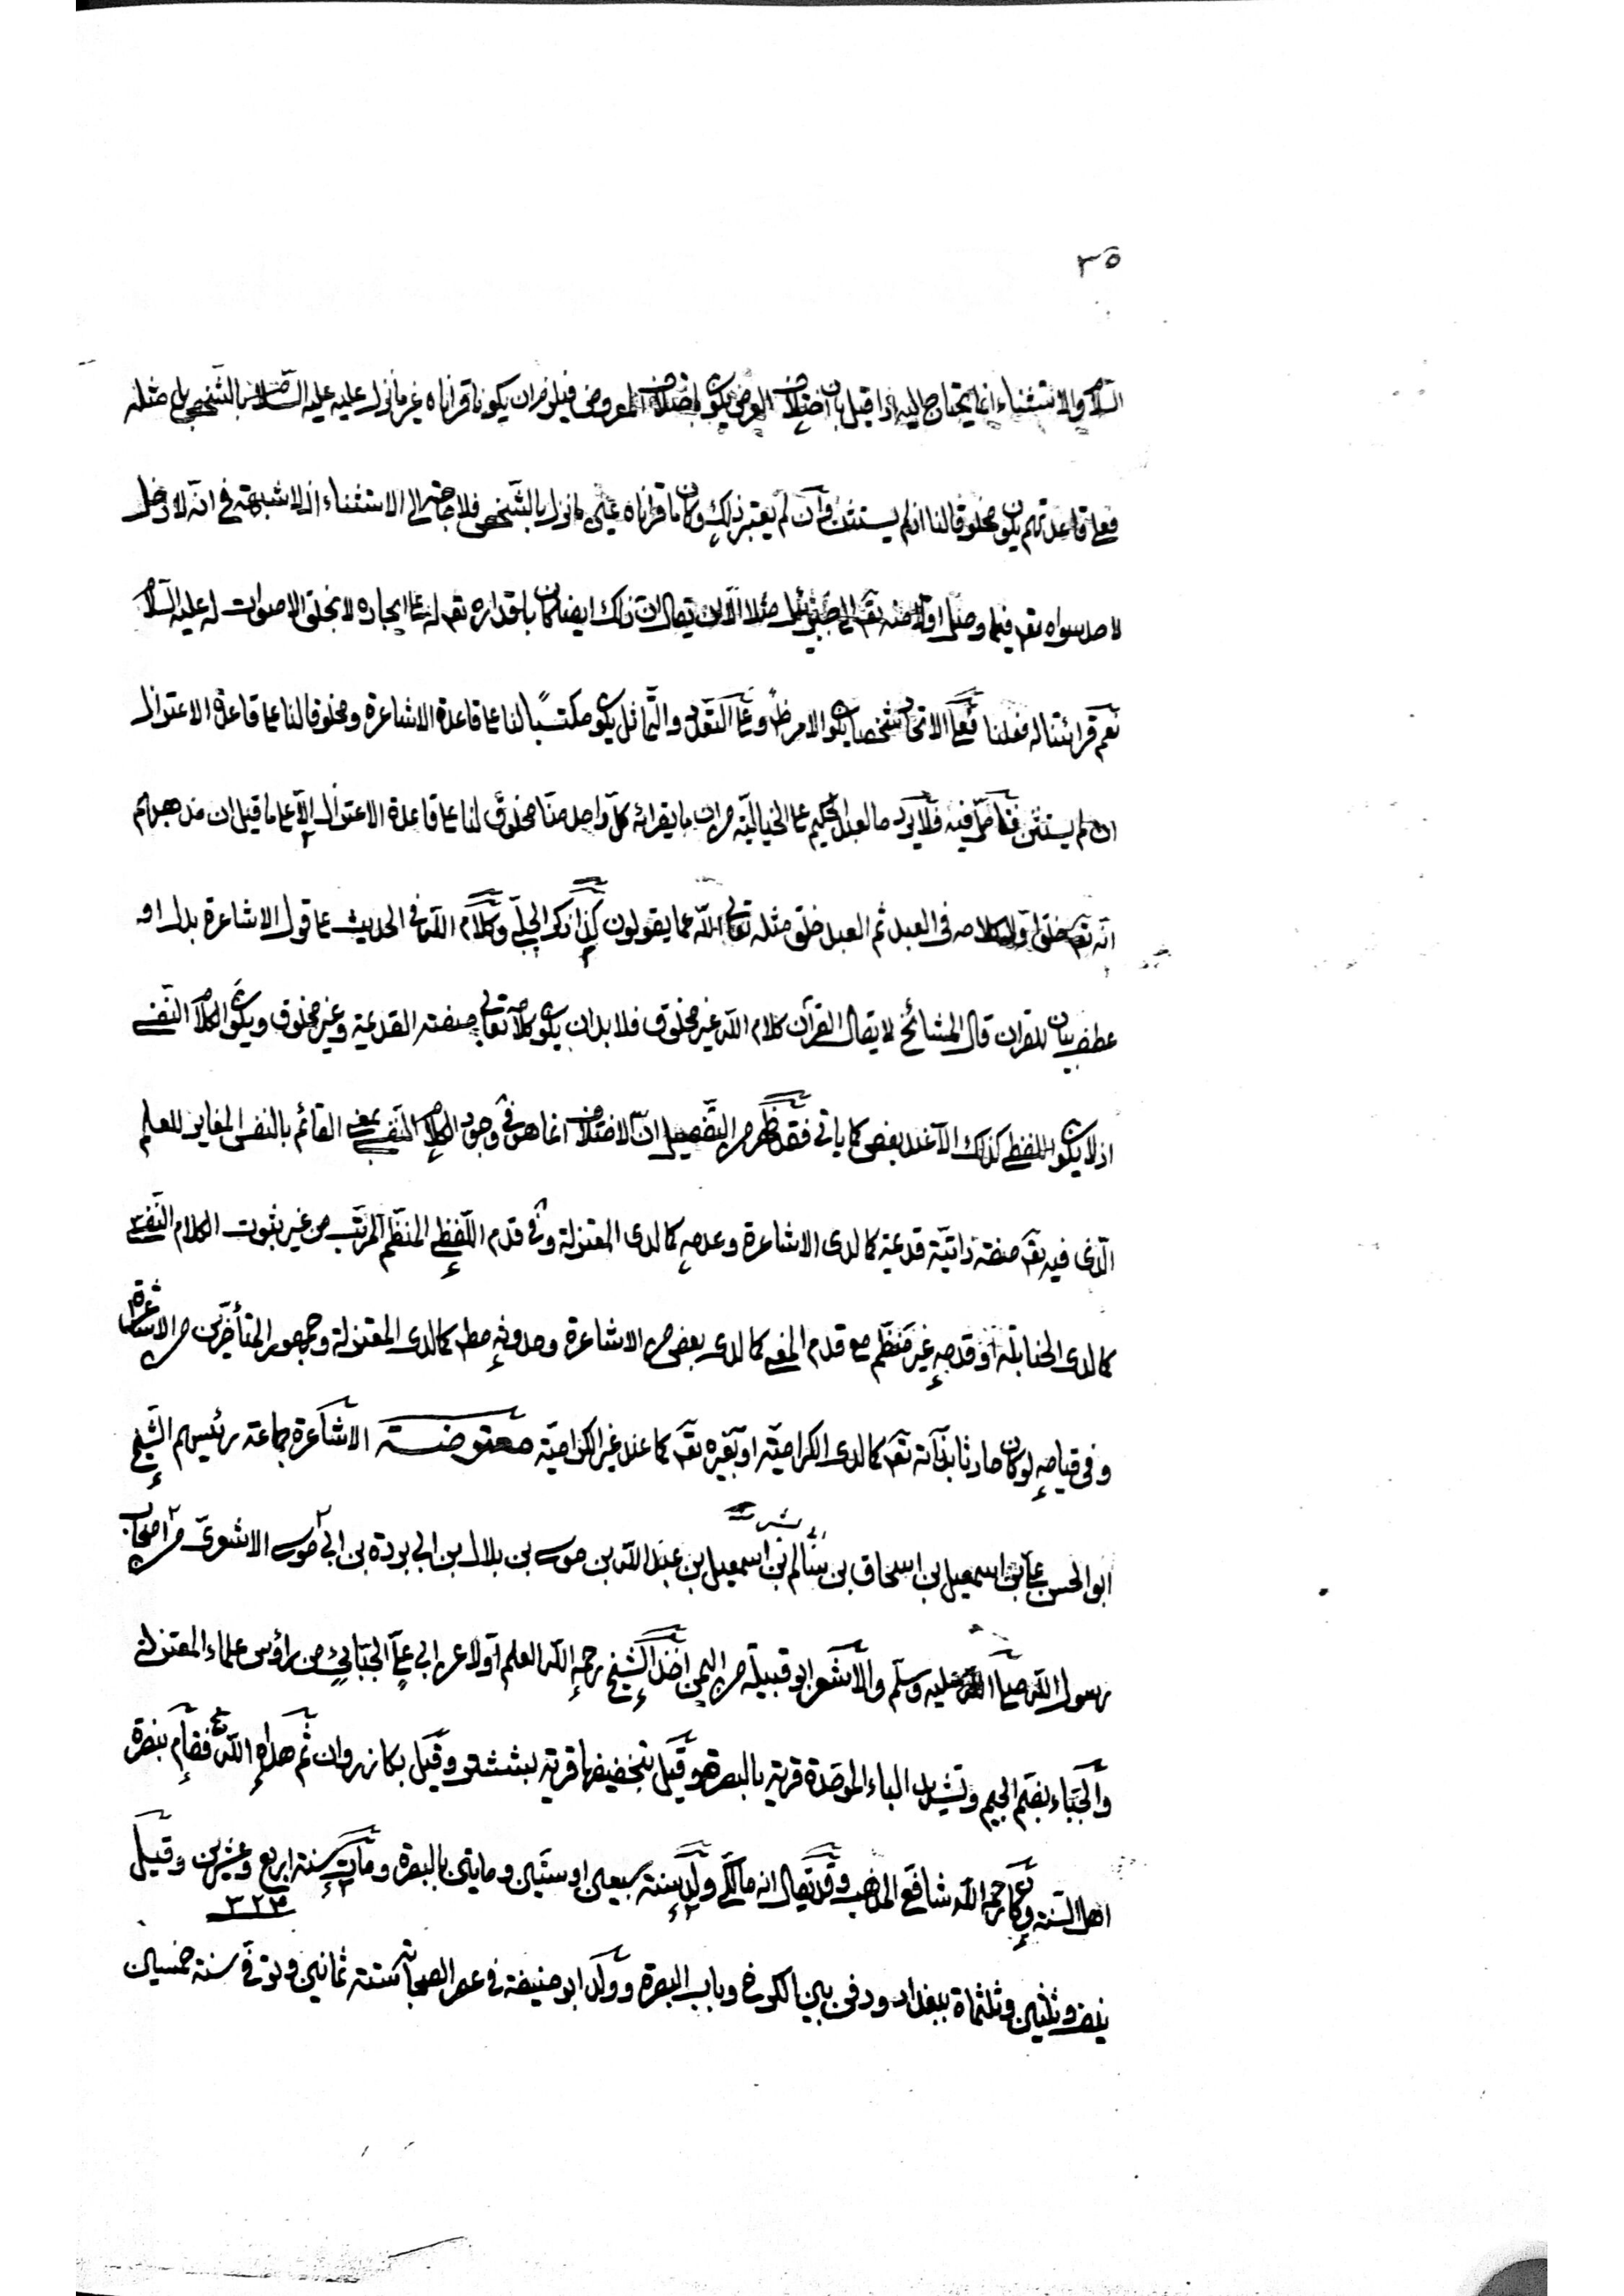 ٣٥
السلام والاستثناء انما يحتاج اليه اذا قيل بان اختلاف العرض يكون باختلاف المعروض فيلزم ان يكون ما قراناه غير ما نزل عليه عليه السلام بالشخص بل مثله
فعلى قاعدتهم يكون مخلوقا لنا ان لم يستثن وان لم يعتبر ذلك وكان ما قراناه عين ما نزل بالشخص فلا حاجة الى الاستثناء اذ لا شبهة في انه لا دخل
لاحد سواه تعم فيما وصل اولا منه تعم الى جبرئيل مثلا الا ان يقال ان ذلك ايضا كان باقداره تعم له على ايجاده لا بخلق الاصوات له عليه السلام
نعم قرائتنا له فعلنا فعلى الاتحاد شخصا يكون الامر ظ وعلى التعدد والتماثل يكون مكتسبًا لنا على قاعدة الاشاعرة ومخلوقا لنا على قاعدة الاعتزال
ان لم يستثن فتامل فيه فلا يرد ما لعبد الحكيم على الخيالية من ان ما يقرائه كل واحد منا مخلوق لنا على قاعدة الاعتزال الا على ما قيل ان مذهبهم
انه تعم خلق اولا كلامه في العبد ثم العبد خلق مثله تعالى الله عما يقولون كذا ذكر الجلي وكلام الله في الحديث على قول الاشاعرة بدل او
عطف بيان للقران قال المشائخ لا يقال القرآن كلام الله غير مخلوق فلا بد ان يكون كلامه تعالى صفته القديمة وغير مخلوق ويكون الكلام النفسي
اذ لا يكون اللفظي كذلك الا عند بعض كما ياتي فقد ظهر من التفصيل ان الاختلاف انما هو في وجود الكلام النفسي بمعنى القائم بالنفس المغاير للعلم
الذي فيه تعم صفة ذاتية قديمة كما لدى الاشاعرة وعدمه كما لدى المعتزلة وفي قدم اللفظي المنظم المرتب من غير ثبوت الكلام النفسي
كما لدى الحنابلة او قدمه غير منظم مع قدم المعنى كما لدى بعض من الاشاعرة وحدوثه مطم كما لدى المعتزلة وجمهور المتأخرين من الاشاعرة
وفي قيامه لو كان حادثا بذاته تعم كما لدى الكرامية او بغيره تعم كما عند غير الكرامية معترضة الاشاعرة جماعة رئيسهم الشيخ
ابو الحسن علي بن اسمعيل بن اسحاق بن سالم بن اسمعيل بن عبد الله بن موسى بن بلال بن ابي بردة بن ابي موسى الاشعري من اصحاب
رسول الله صلى الله عليه وسلم والاشعر ابو قبيلة من اليمن اخذ الشيخ رحمه الله العلم اولا عن ابي علي الجبائي من رؤس علماء المعتزلة
والجباء بضم الجيم وتشديد الباء الموحدة قرية بالبصرة وقيل بتخفيفها قرية بششتر وقيل بكازروان ثم هداه الله تع فقام بنصرة
اهل السنة وكان رحمه الله شافعي المذهب وقد يقال انه مالكي ولد سنة سبعين او ستين ومايتي بالبصرة ومات سنة اربع وعشرين وقيل
٣٢٤
نيف وثلثين وثلثماة ببغداد ودفن بين الكرخ وباب البصرة وولد ابو حنيفة في عصر الصحابة سنة ثمانين وتوفي سنة خمسين